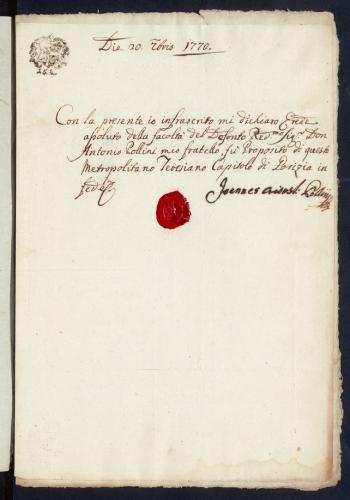 Die 20 7bris 1770.
Con la presente io infrascrito mi dichiaro Erede
assoluto della facoltà del Defonto Red.mo Sig.r Don
Antonio Pollini mio fratello, fù Proposito di questo
Metropolitano Teresiano Capitolo di Gorizia in
fede
Joannes Pollini